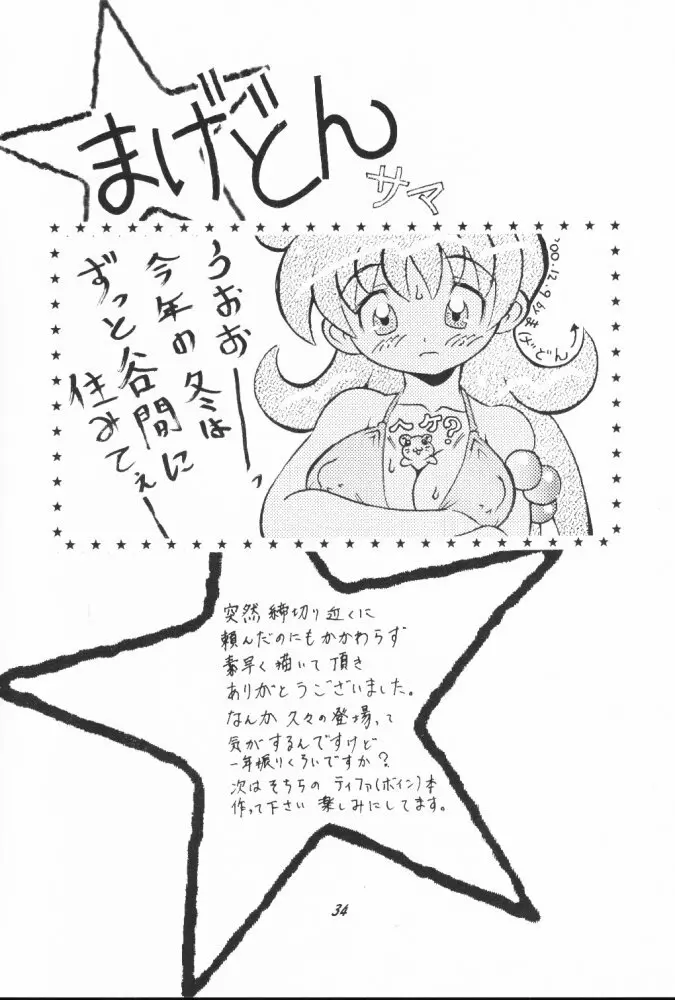 まげどん
サマ
うおおーっ
今年の冬は
ずっと谷間に
住みてぇー
'00.12.9 by
まげどん
ヘケ?
突然 締切り近くに
頼んだのにもかかわらず
素早く描いて頂き
ありがとうございました。
なんか 久々の登場って
気がするんですけど
一年振りくらいですか?
次はそちらの ティファ(ボイン)本
作って下さい 楽しみにしてます。
34